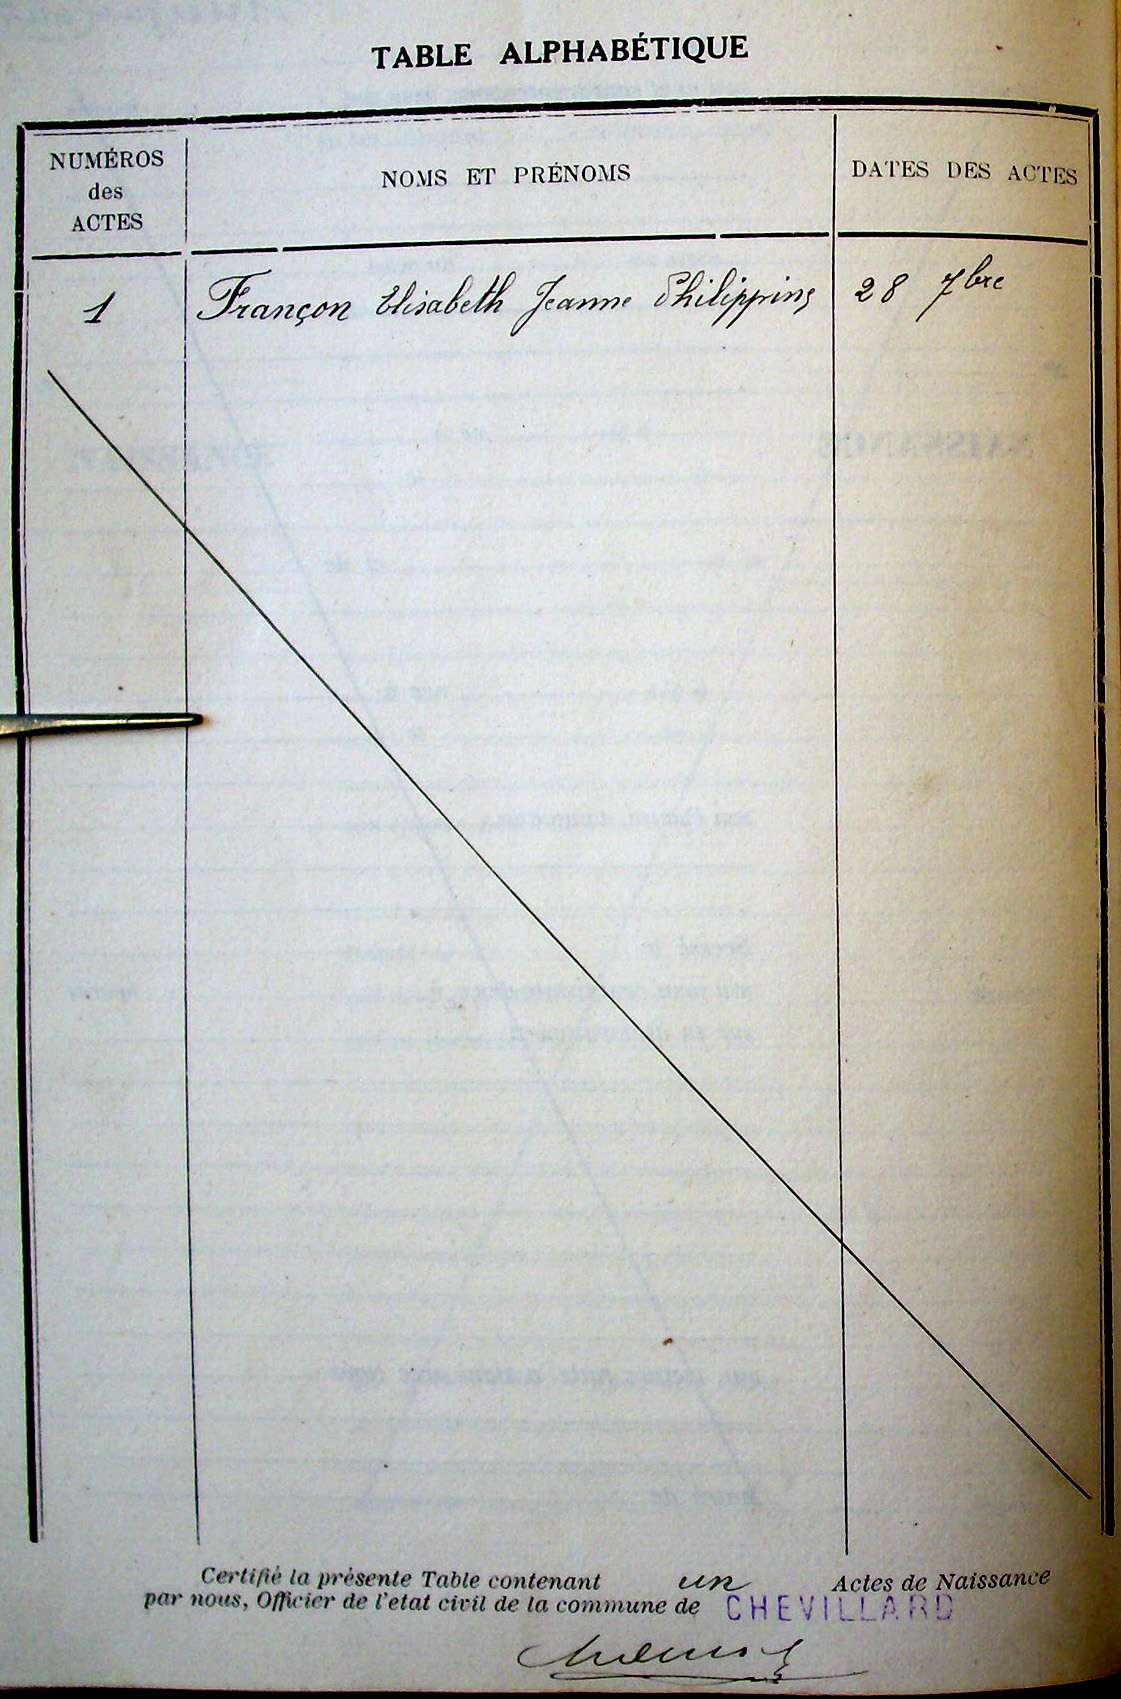 TABLE ALPHABÉTIQUE
NUMÉROS
des
ACTES
NOMS ET PRÉNOMS
DATES DES ACTES
1 Françon Elisabeth Jeanne Philippine 28 7bre
Certifié la présente Table contenant un Actes de Naissance
par nous, Officier de l'etat civil de la commune de CHEVILLARD